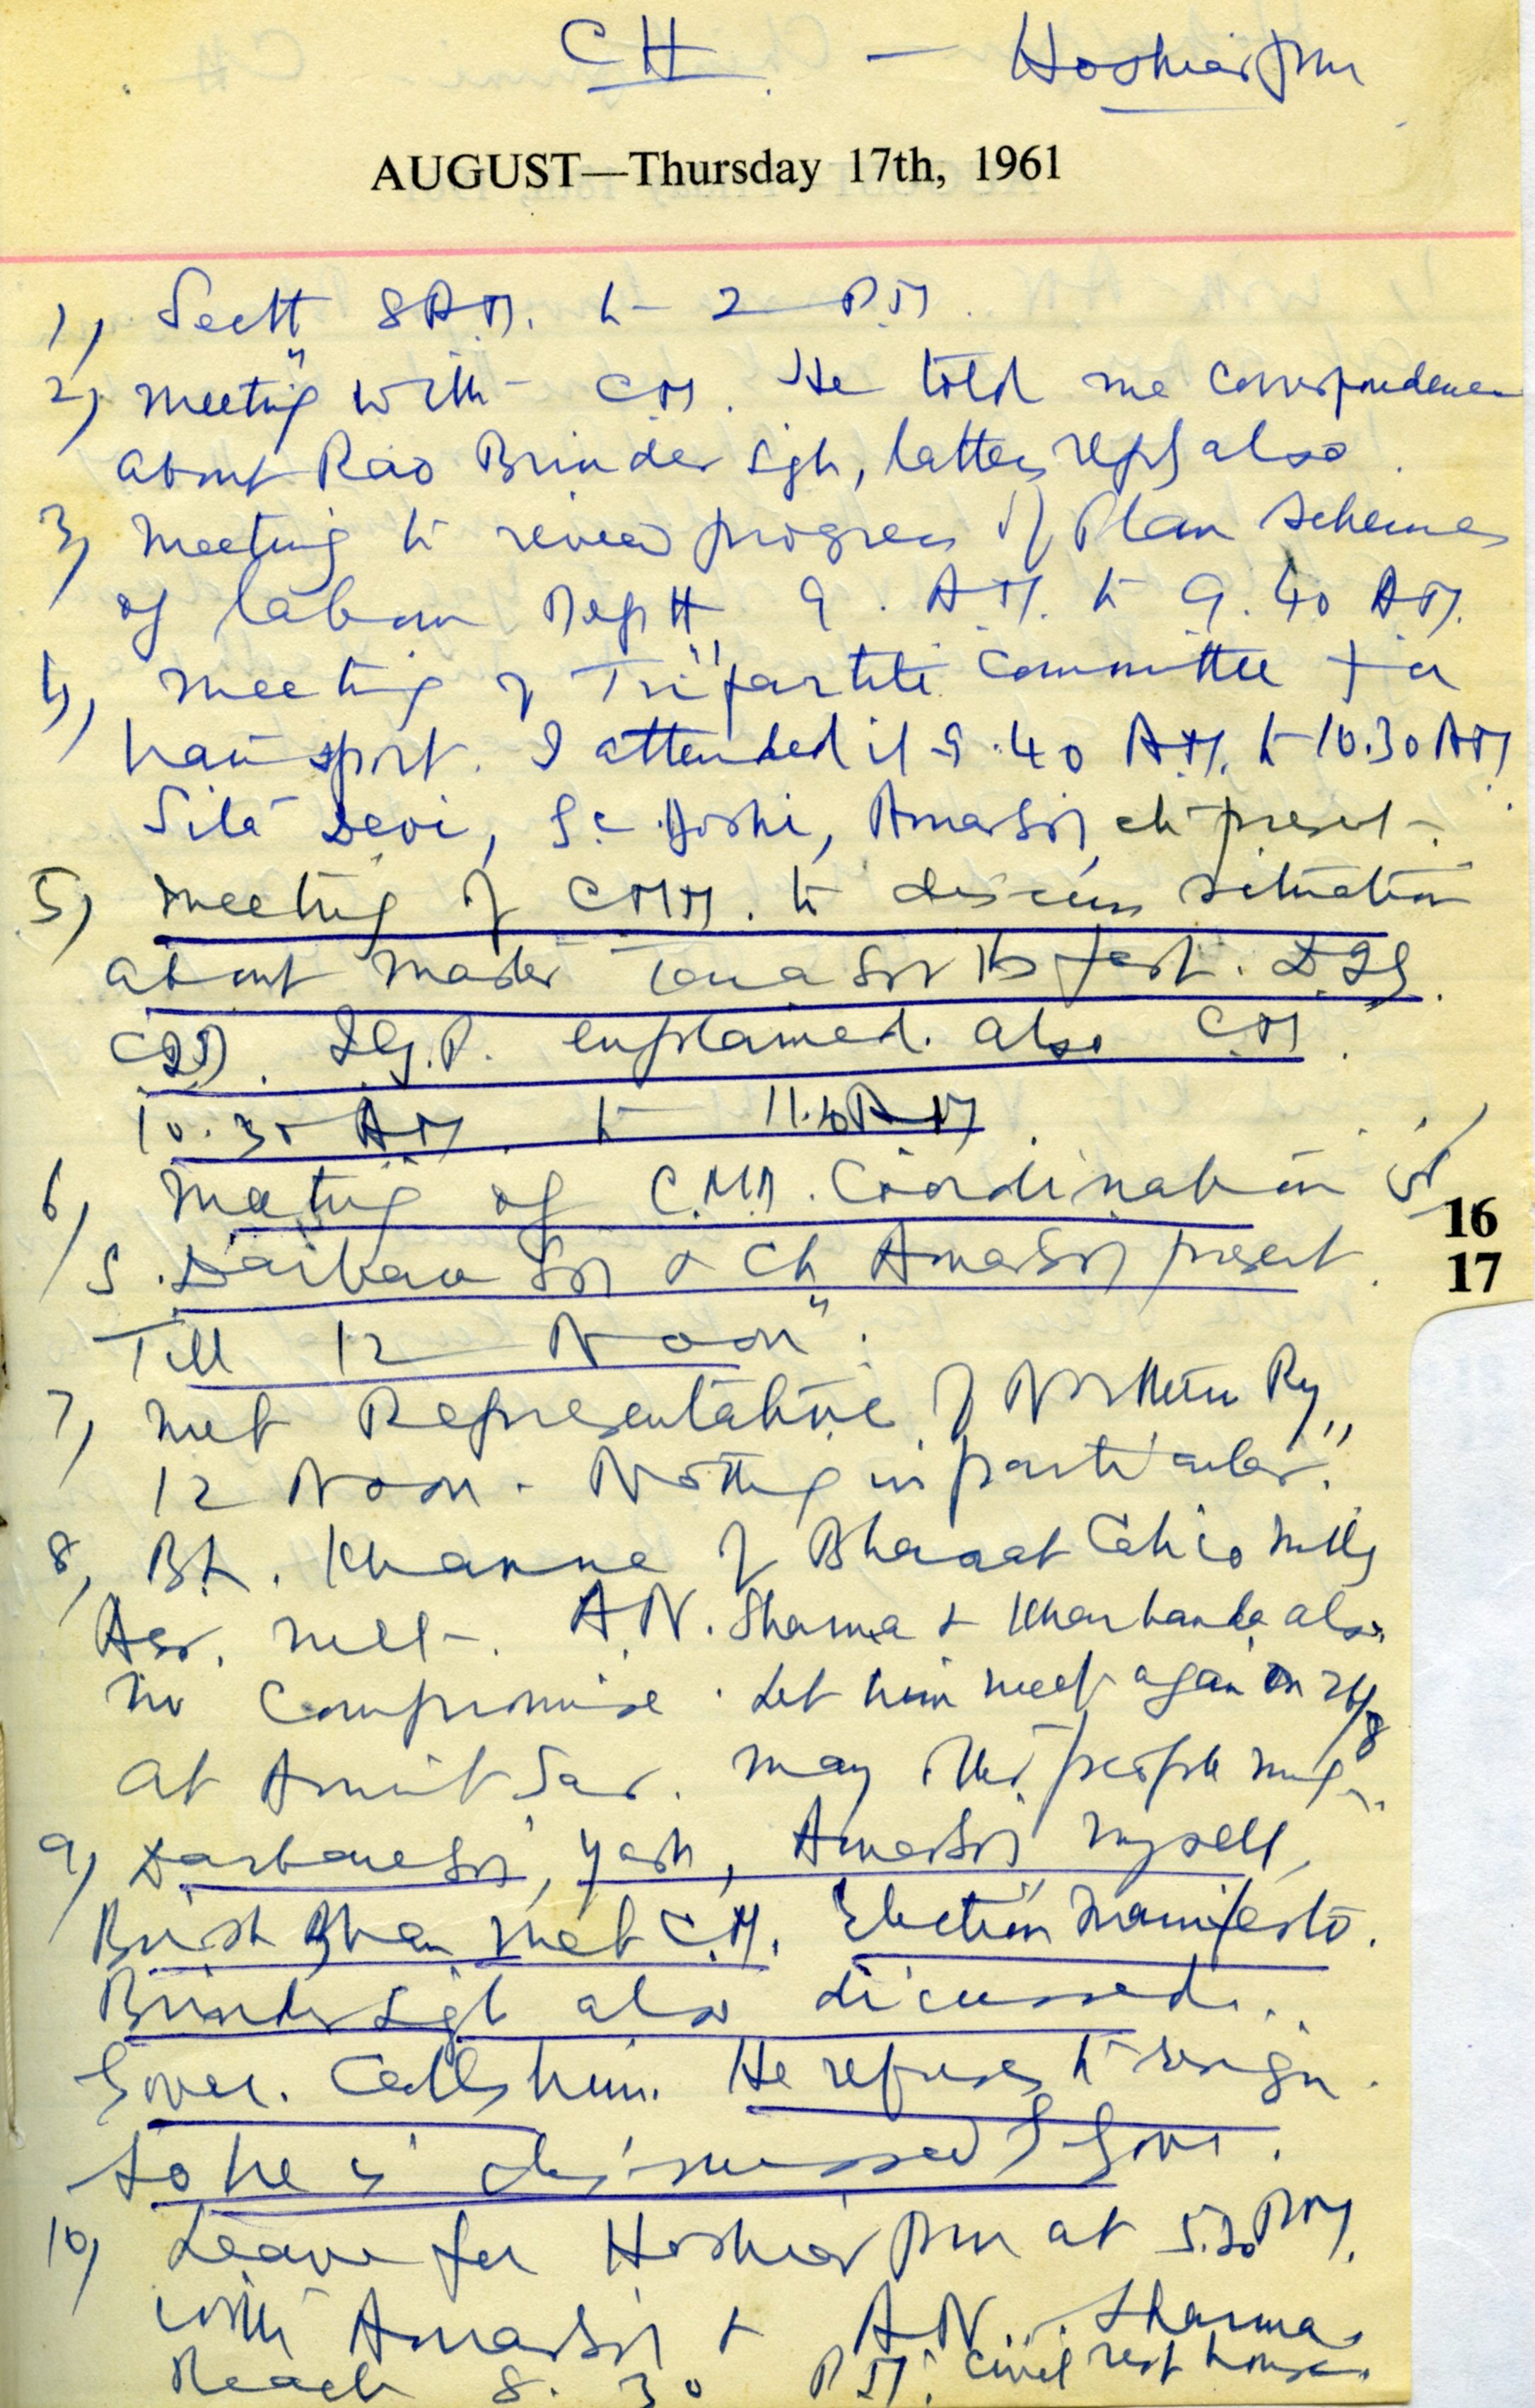 CH — Hoshiarpur
AUGUST—Thursday 17th, 1961
1) Sectt 8 A.M. to 2 P.M.
2) Meeting with CM. He told me correspondence
about Rao Birinder Sgh, latters reply also.
3) Meeting to review progress of Plan Schemes
of Labour Deptt 9. A.M. to 9.40 A.M.
4) Meeting of Tripartite Committee for
transport. I attended it 9.40 A.M. to 10.30 AM
Sita Devi, Joshi, Amar Sgh etc present.
5) Meeting of CMM. to discuss situation
about Master Tara Sgh's fast. D.I.G.
CID. I.G.P. explained. also C.M.
10.30 AM. to 11.40 AM.
6) Meeting of C.M.M. Coordination
S. Darbara Sgh & Ch Amar Sgh present.
Till 12 Noon.
7) Met Representative of Northern Ry,,
12 Noon. Nothing in particular.
8) Bh. Khanna of Bharat Calico Mills
Asr. met. A.N. Sharma & Kharbanda also.
No compromise. Let him meet again on 26/8
at Amritsar. Many other people
9) Darbara Sgh, Yash, Amar Sgh myself,
Brish Bhan met C.M. Election Manifesto.
Birinder Sgh also discussed.
Gover. Calls him. He refuses to resign.
So he is dismissed by Govr.
10) Leave for Hoshiarpur at 5.30 P.M.
with Amar Sgh & A.N. Sharma.
Reach 8.30 P.M. Civil rest house.
16
17